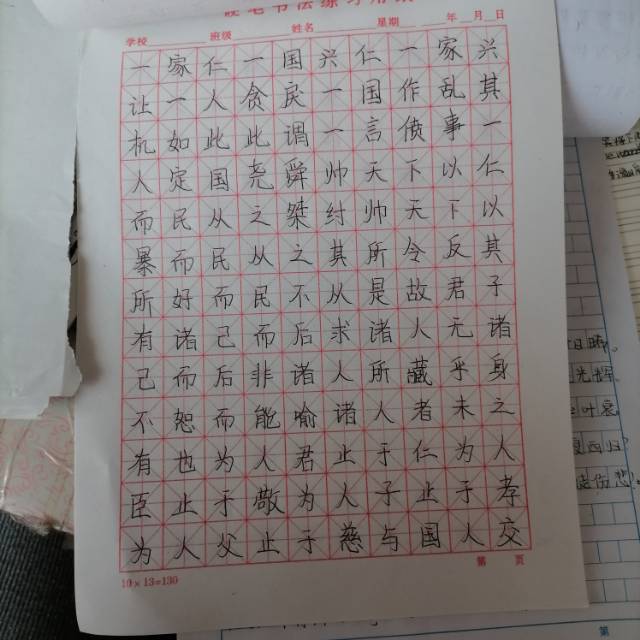 硬笔书法练习用纸
学校 班级 姓名 星期 年 月 日
一家仁一国兴仁一家兴
让一人贪戾一国作乱其
机如此此谓一言偾事一
人定国尧舜帅天下以仁
而民从之桀纣帅天下以
暴而民从之其所令反其
所好而民不从是故君子
有诸己而后求诸人无诸
己而后非诸人所藏乎身
不恕而能喻诸人者未之
有也为人君止于仁为人
臣止于敬为人子止于孝
为人父止于慈与国人交
10×13=130
第 页
第